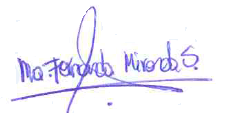 Ma. Fernanda Miranda S.